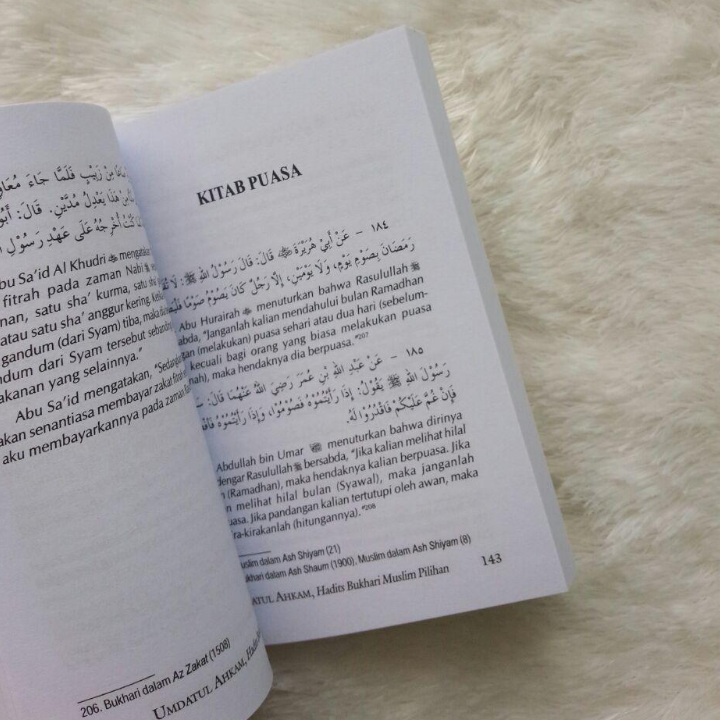 مِنْ زَبِيْبٍ فَلَمَّا جَاءَ مُعَاوِ
مِنْ هَذَا يَعْدِلُ مُدَّيْنِ. قَالَ: أَبُو
كُنْتُ أُخْرِجُهُ عَلَى عَهْدِ رَسُوْلِ
bu Sa'id Al Khudri mengatakan
fitrah pada zaman Nabi
nan, satu sha' kurma, satu sha'
atau satu sha' anggur kering.
gandum (dari Syam) tiba, maka
ndum dari Syam tersebut sebanding
akanan yang selainnya."
Abu Sa'id mengatakan, "Sedang
akan senantiasa membayar zakat fitrah
aku membayarkannya pada zaman
206. Bukhari dalam Az Zakat (1508)
UMDATUL AHKAM,
KITAB PUASA
١٨٤ – عَنْ أَبِيْ هُرَيْرَةَ قَالَ: قَالَ رَسُوْلُ اللهِ ﷺ:
رَمَضَانَ بِصَوْمِ يَوْمٍ، وَلَا يَوْمَيْنِ، إِلَّا رَجُلٌ كَانَ يَصُوْمُ صَوْمًا
Abu Hurairah menuturkan bahwa Rasulullah ﷺ
abda, "Janganlah kalian mendahului bulan Ramadhan
an (melakukan) puasa sehari atau dua hari (sebelum-
kecuali bagi orang yang biasa melakukan puasa
nah), maka hendaknya dia berpuasa."207
١٨٥ – عَنْ عَبْدِ اللهِ بْنِ عُمَرَ رَضِيَ اللهُ عَنْهُمَا قَالَ:
رَسُوْلَ اللهِ ﷺ يَقُوْلُ: إِذَا رَأَيْتُمُوْهُ فَصُوْمُوْا، وَإِذَا رَأَيْتُمُوْهُ
فَإِنْ غُمَّ عَلَيْكُمْ فَاقْدُرُوْا لَهُ.
Abdullah bin Umar menuturkan bahwa dirinya
dengar Rasulullah ﷺ bersabda, "Jika kalian melihat hilal
n (Ramadhan), maka hendaknya kalian berpuasa. Jika
n melihat hilal bulan (Syawal), maka janganlah
uasa. Jika pandangan kalian tertutupi oleh awan, maka
ra-kirakanlah (hitungannya)."208
uslim dalam Ash Shiyam (21)
ukhari dalam Ash Shaum (1900), Muslim dalam Ash Shiyam (8)
DATUL AHKAM, Hadits Bukhari Muslim Pilihan
143